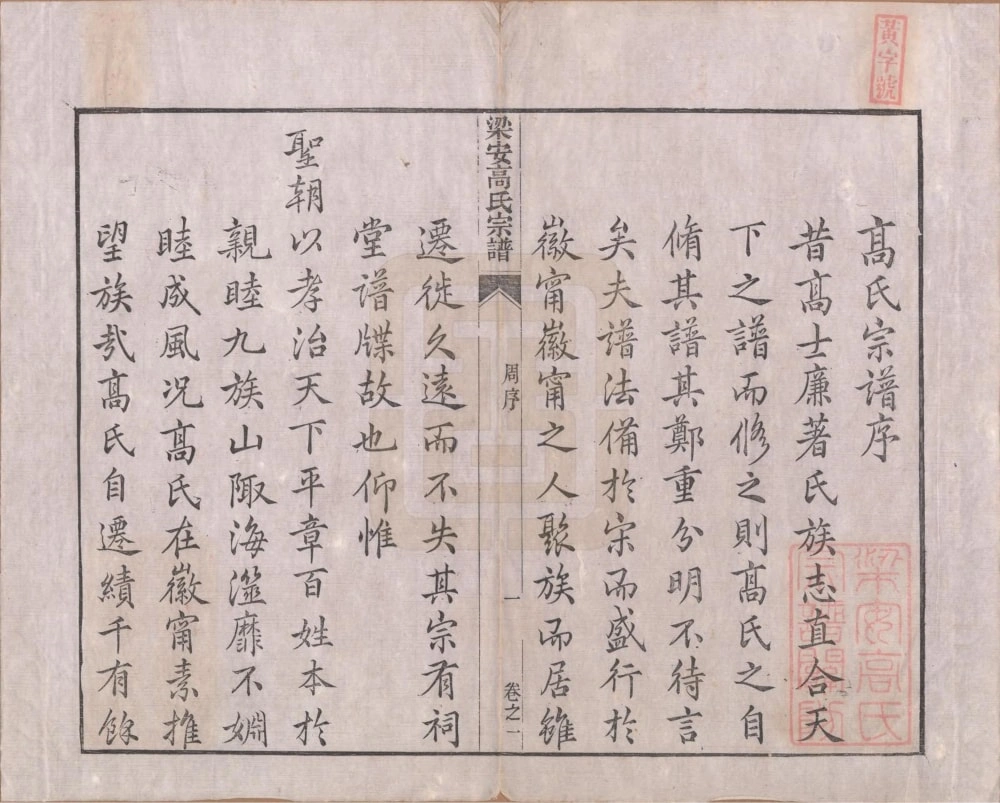 黃字號
高氏宗譜序
昔高士廉著氏族志直合天
下之譜而修之則高氏之自
脩其譜其鄭重分明不待言
矣夫譜法備於宋而盛行於
徽甯徽甯之人聚族而居雖
梁安高氏宗譜
周序
一
卷之一
遷徙久遠而不失其宗有祠
堂譜牒故也仰惟
聖朝以孝治天下平章百姓本於
親睦九族山陬海澨靡不婣
睦成風况高氏在徽甯素推
望族哉高氏自遷績千有餘
梁安高氏